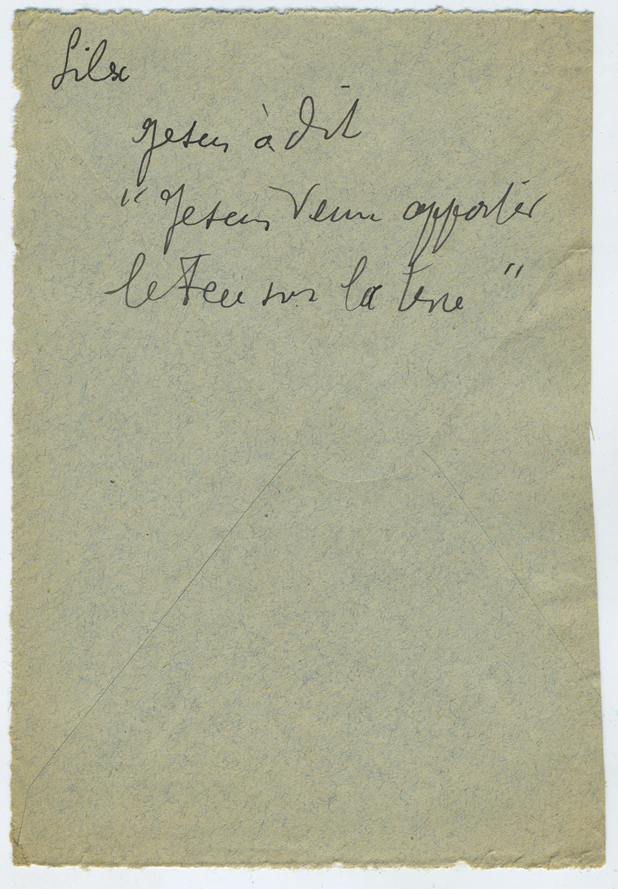 Silex
Jesus à dit
" Jesuis Venu apporter
le Feu sur la terre "